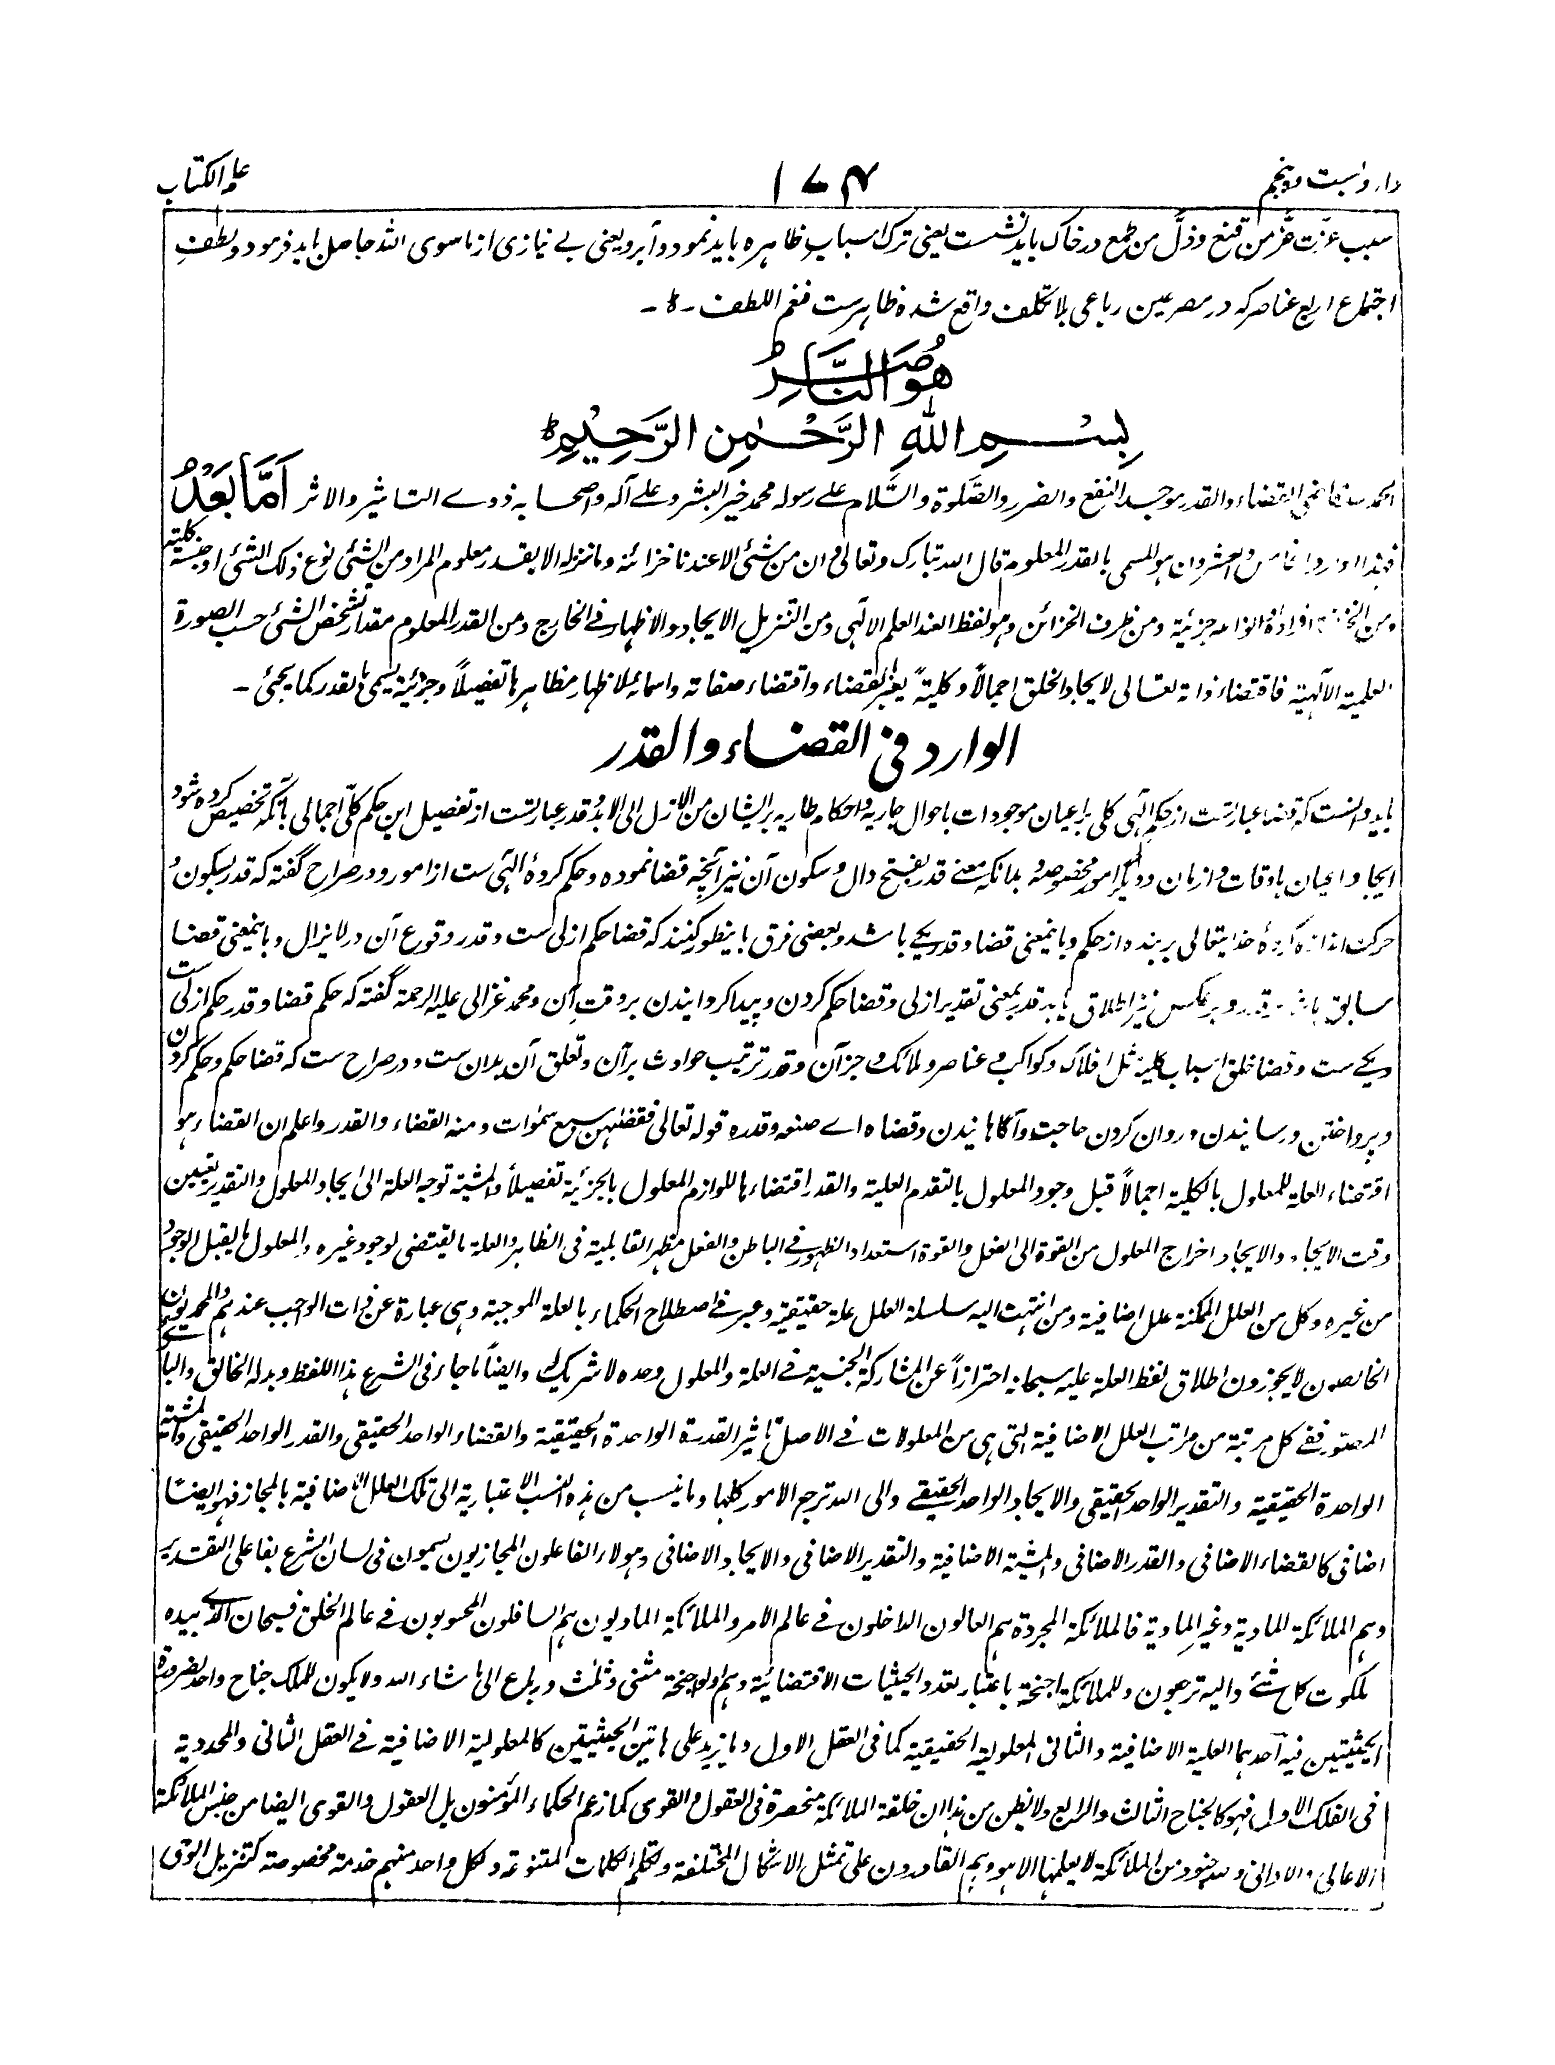 وارد بست و پنجم
۱۷۴
علم الکتاب
سبب عزت عَزَّ من قنع و ذلَّ من طمع در خاک باید نشست یعنی ترک اسباب ظاهره باید نمود و آبرو یعنی بے نیازی از ماسوی الله حاصل باید فرمود و لطفِ
اجتماع اربع عناصر که در مصرعین رباعی بلا تکلف واقع شده ظاهرست فنعم اللطف ـ ط ـ
هو النَّاصِرُ
بِسْمِ اللهِ الرَّحْمٰنِ الرَّحِيْمِ ط
الحمد لله قاضی القضاء والقدر موجد النفع والضرر والصَّلوة والسَّلام علے رسوله محمد خیر البشر و علے آله واصحابه ذوے التاثیر والاثر اَمَّا بَعْدُ
فهذا الوارد الخامس والعشرون هو المسمی بالقدر المعلوم قال الله تبارک وتعالی و ان من شئی الا عندنا خزائنه وما ننزله الا بقدر معلوم المراد من الشئی نوع ذلک الشئی او جنسه کلیة
ومن الخزائن افراده الواقعة جزئیة ومن ظرف الخزائن وهو لفظ العند العلم الالٓهی ومن التنزیل الایجاد والاظهار فی الخارج ومن القدر المعلوم مقدار تشخص الشئی حسب الصورة
العلمیة الالٓهیة فاقتضاء ذاته تعالی لایجاد الخلق اجمالاً وکلیةً یعبر بالقضاء واقتضاء صفاته واسمائه لاظهار مظاهرها تفصیلاً وجزئیة یسمی بالقدر کما یجیئ ـ
الوارد فی القضاء والقدر
باید دانست که قضا عبارتست از حکم الٓهی کلی بر اعیان موجودات باحوال جاریه و احکام طاریه بر ایشان من الازل الی الابد و قدر عبارتست از تفصیل این حکم کلّی اجمالی بآنکه تخصیص کرده شود
ایجاد اعیان باوقات و ازمان و دیگر امور مخصوصه و بدانکه معنے قدر بفتح دال و سکون آن نیز آنچه قضا نموده و حکم کرده الٓهی ست از امور و در صراح گفته که قدر بسکون و
حرکت اندازه کردهٔ خدایتعالی بر بنده از حکم و باینمعنی قضا و قدر یکے باشد و بعضی فرق باینطور کنند که قضا حکم ازلی ست و قدر وقوع آن در لایزال و باینمعنی قضا
سابق باشد بر قدر و بر عکس نیز اطلاق یابد قدر بمعنی تقدیر ازلی و قضا حکم کردن و پیدا کردانیدن بر وقت آن و محمد غزالی علیه الرحمة گفته که حکم قضا و قدر حکم ازلی ست
یکے ست و قضا خلق اسباب کلیه مثل افلاک و کواکب و عناصر و ملائک و جز آن و قدر ترتیب حوادث بر آن و تعلق آن بدان ست و در صراح ست که قضا حکم و حکم کردن
و پرداختن و رسانیدن و روان کردن حاجت و آگاهانیدن و قضاه اے صنعه و قدره قوله تعالی فقضهن سبع سموات و منه القضاء والقدر واعلم ان القضاء هو
اقتضاء العلة للمعلول بالکلیة اجمالاً قبل وجود المعلول بالتقدم العلیة والقدر اقتضاءها للوازم المعلول بالجزئیة تفصیلاً والمشیة توجه العلة الی ایجاد المعلول والتقدیر تعیین
وقت الایجاد والایجاد اخراج المعلول من القوة الی الفعل والقوة استعداد الظهور فی الباطن والفعل مظهر القابلیة فی الظاهر والعلة ما یقتضی لوجود غیره والمعلول ما یقبل الوجود
من غیره وکل من العلل الممکنة علل اضافیة ومن انتهت الیه سلسلة العلل علة حقیقیة وعبر فی اصطلاح الحکماء بالعلة الموجبة وهی عبارة عن ذات الواجب عندهم والمحمدیون
الخالصون لا یجوزون اطلاق لفظ العلة علیه سبحانه احترازاً عن المشارکة الجنسیة فی العلة والمعلول وحده لا شریک له وایضاً ما جاء فی الشرع هذا اللفظ وبدله الخالق والباری
المصور ففی کل مرتبة من مراتب العلل الاضافیة التی هی من المعلولات فی الاصل تاثیر القدرة الواحدة الحقیقیة والقضاء الواحد الحقیقی والقدر الواحد الحقیقی والمشیة
الواحدة الحقیقیة والتقدیر الواحد الحقیقی والایجاد الواحد الحقیقے والی الله ترجع الامور کلها وما ینسب من هذه النسب الاعتباریة الی تلک العلل الاضافیة بالمجاز فهو ایضاً
اضافی کالقضاء الاضافی والقدر الاضافی والمشیة الاضافیة والتقدیر الاضافی والایجاد الاضافی وهولاء الفاعلون المجازیون یسمون فی لسان الشرع بفاعلی التقدیر
وهم الملائکة المادیة وغیر المادیة فالملائکة المجردة هم العالون الداخلون فے عالم الامر والملائکة المادیون هم السافلون المحسوبون فے عالم الخلق فسبحان الذے بیده
ملکوت کل شئے والیه ترجعون وللملائکة اجنحة باعتبار تعدد الحیثیات الاقتضائیة وهم اولو اجنحة مثنی وثلث ورباع الی ما شاء الله ولا یکون للملک جناح واحد لضرورة
الحیثیتین فیه احدهما العلیة الاضافیة والثانی المعلولیة الحقیقیة کما فی العقل الاول وما یزید علی هاتین الحیثیتین کالمعلولیة الاضافیة فے العقل الثانی والمحددیة
فی الفلک الاول فهو کالجناح الثالث والرابع ولا تظن من هذا ان خلقة الملائکة منحصرة فی العقول والقوی کما زعم الحکماء المؤمنون بل العقول والقوی ایضا من جنس الملائکة
الاعالی والادانی ولله جنود من الملائکة لا یعلمها الا هو وهم القادرون علی تمثل الاشکال المختلفة وتکلم الکلمات المتنوعة ولکل واحد منهم خدمة مخصوصة کتنزیل الوحی